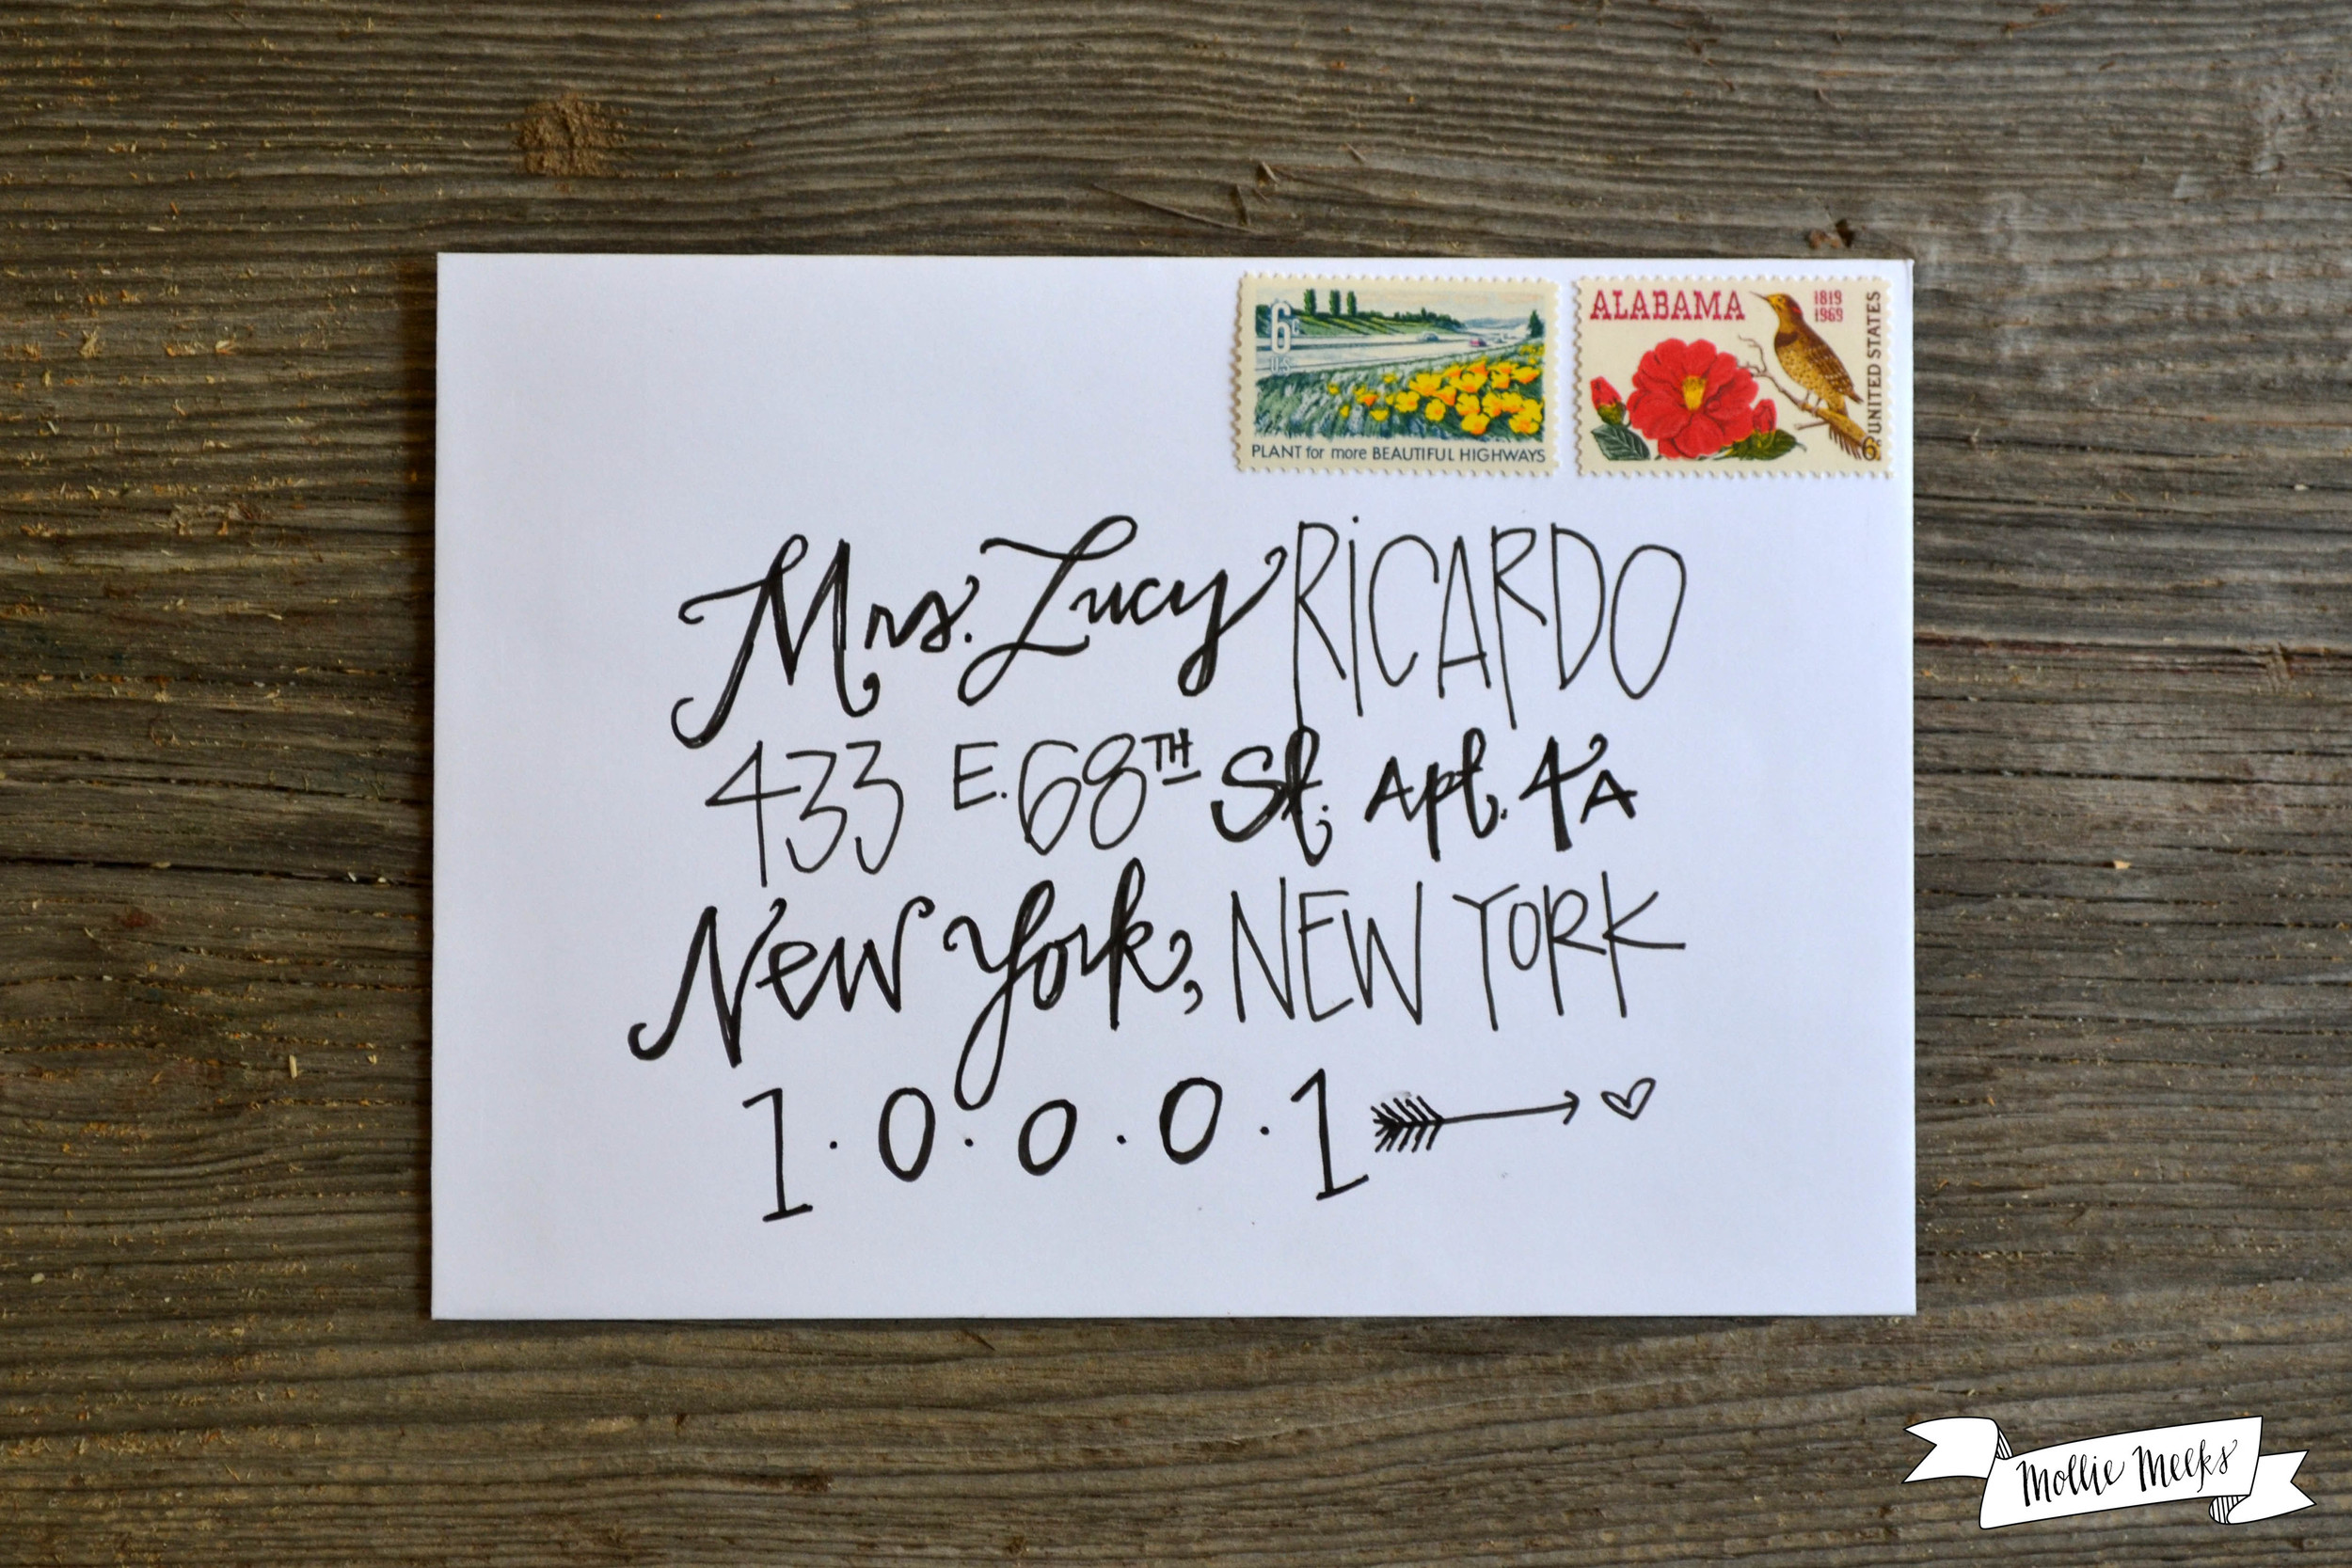 6c
US
PLANT for more BEAUTIFUL HIGHWAYS
ALABAMA
1819
1969
UNITED STATES
6c
Mrs. Lucy RiCARDO
433 E. 68TH St. Apt. 4A
New York, NEW YORK
1.0.0.0.1
Mollie Meeks